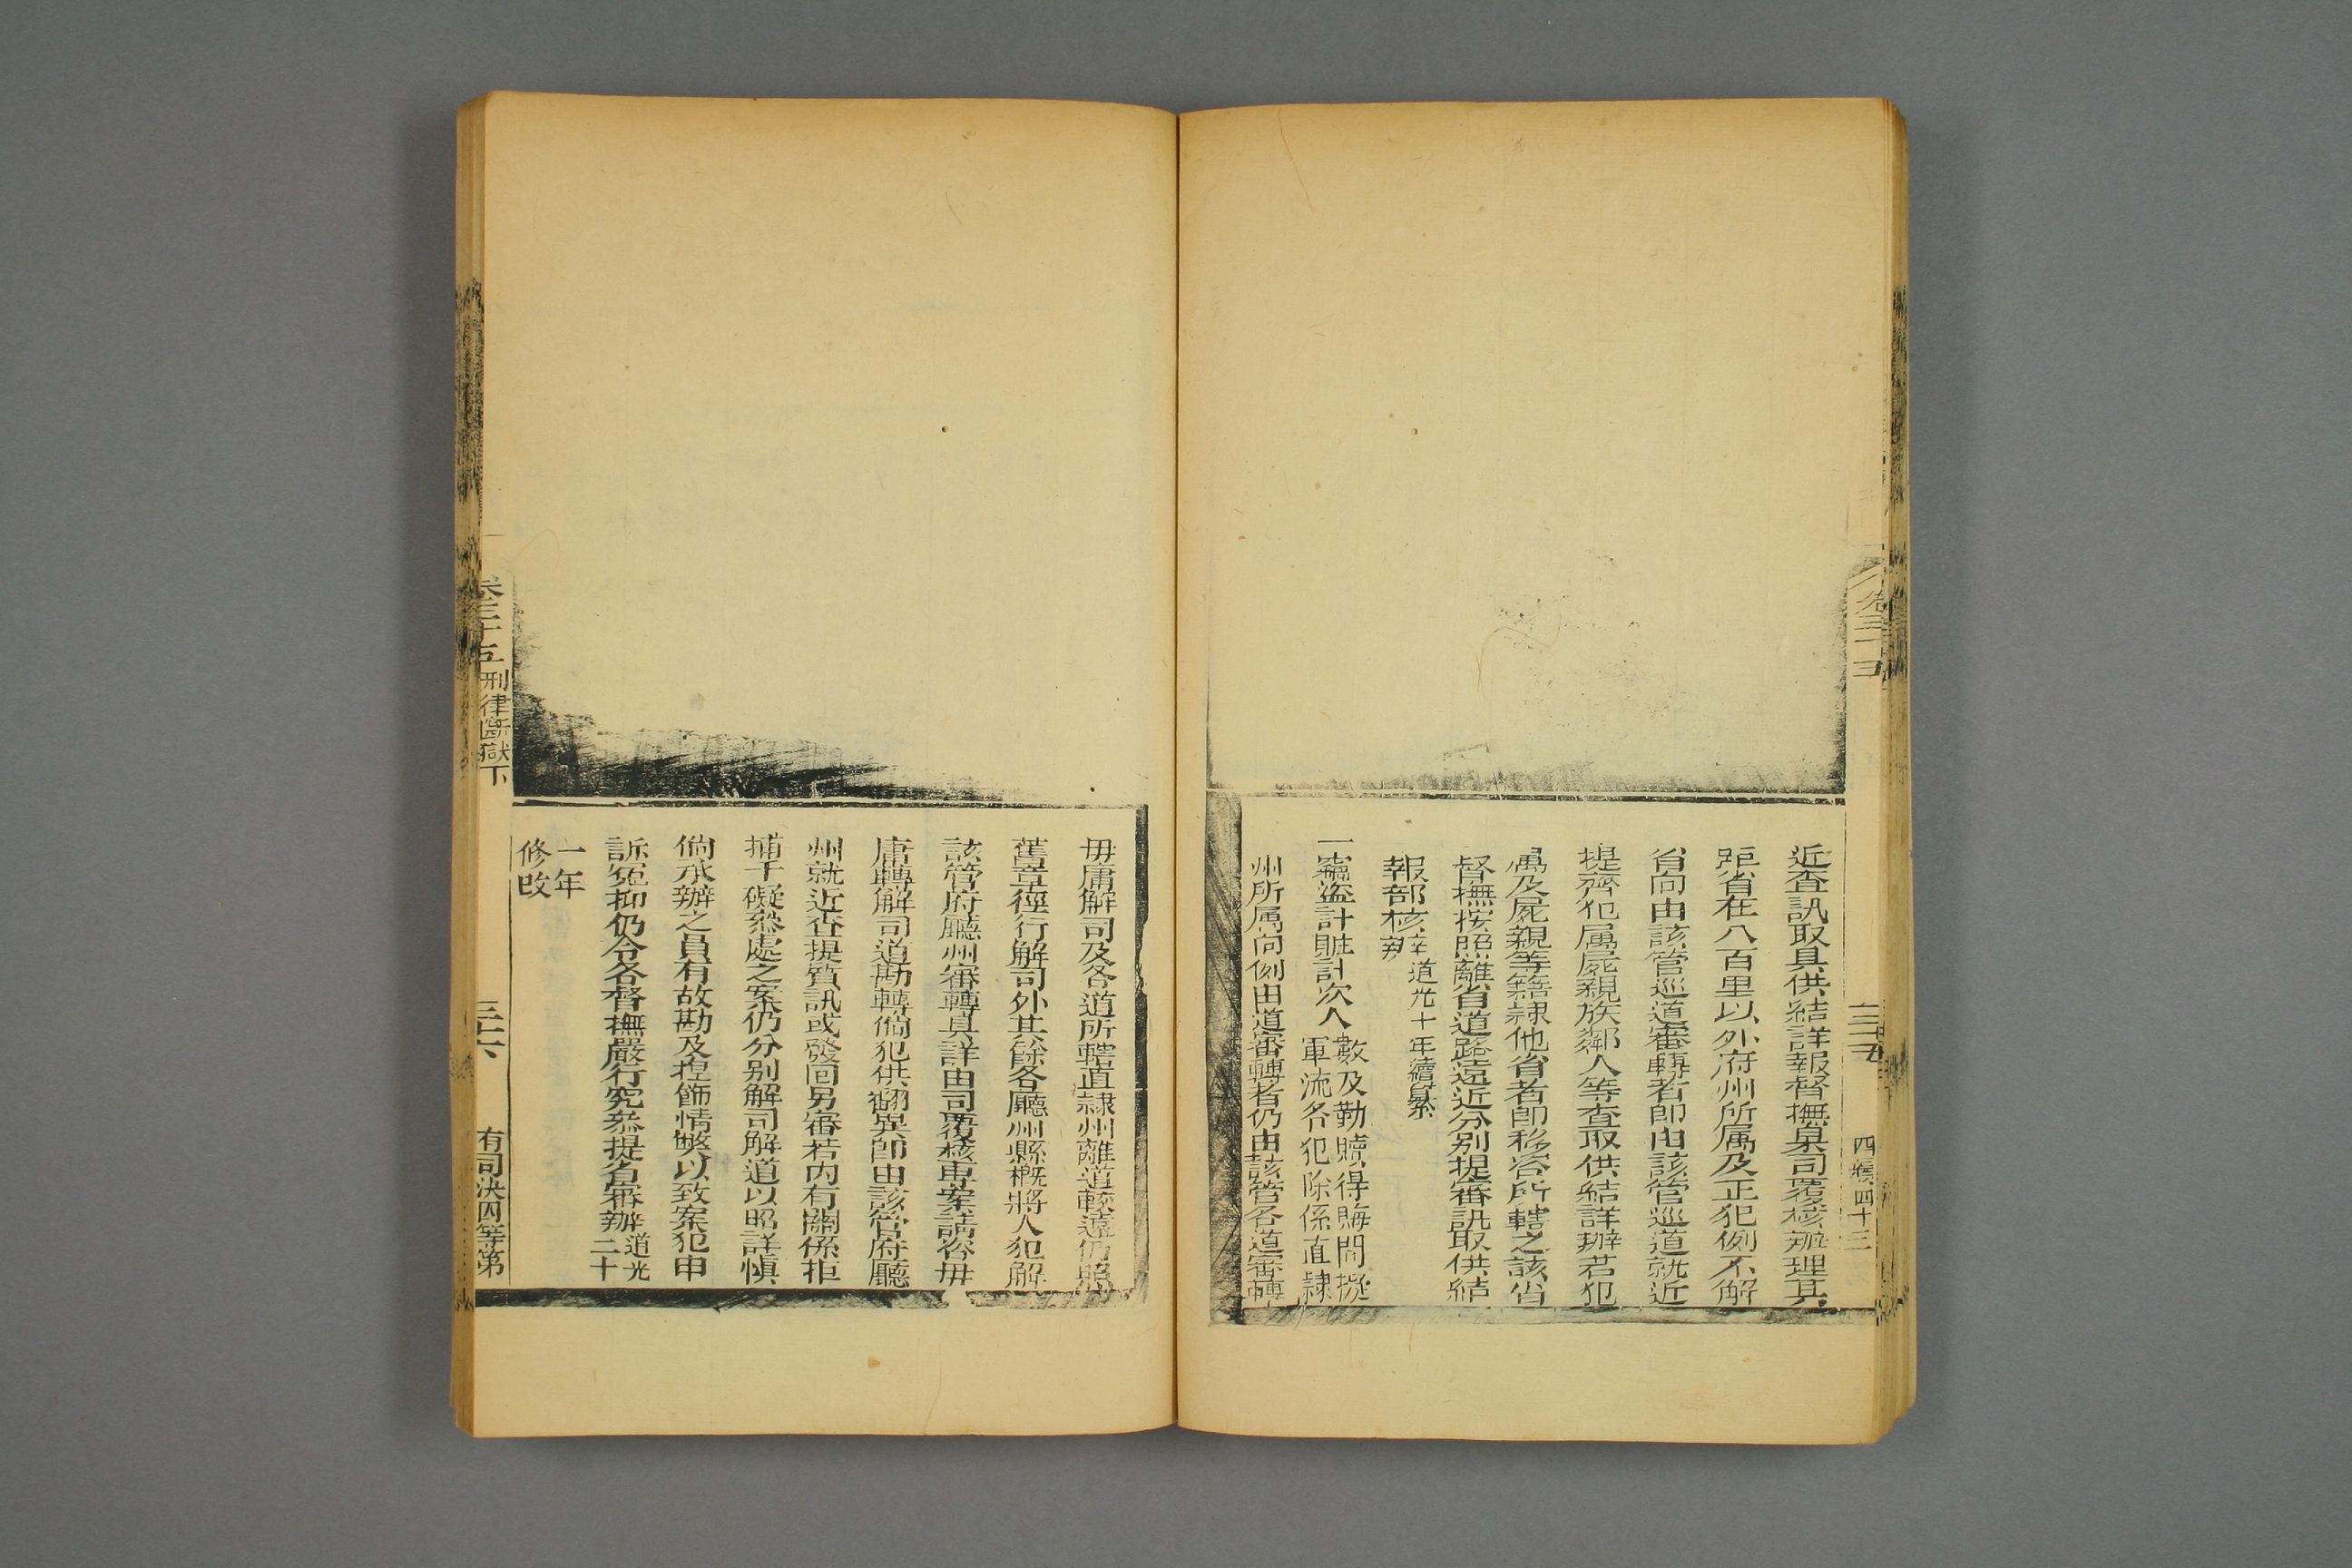 近查訊取具供結詳報督撫臬司覆核辦理其
距省在八百里以外府州所属及正犯例不解
省向由該管巡道審轉者即由該管巡道就近
提齊犯属屍親族鄰人等查取供結詳辦若犯
属及屍親等籍隸他省者即移咨所轄之該省
督撫按照離省道路遠近分别提審訊取供結
報部核辦
道光十年續纂
一竊盜計賍計次人
數及勒贖得賄問擬
軍流各犯除係直隸
州所属向例由道審轉者仍由該管各道審轉
毋庸解司及各道所轄直隸州離道較遠仍照
舊章徑行解司外其餘各廳州縣概將人犯解
該管府廳州審轉具詳由司覆核專案請咨毋
庸轉解司道勘轉倘犯供翻異即由該管府廳
州就近查提質訊或發回另審若内有關係拒
捕干礙叅處之案仍分别解司解道以昭詳慎
倘承辦之員有故勘及捏飾情弊以致案犯申
訴寃抑仍令各督撫嚴行究叅提省審辦
道光
二十
一年
修改
卷三十五 刑律斷獄下
三十六
有司決囚等第